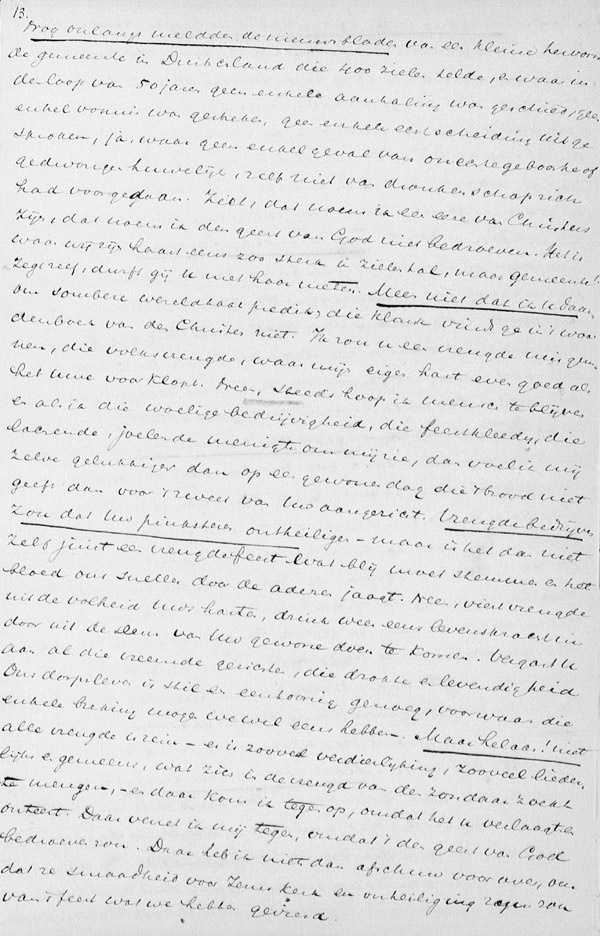 13.
Nog onlangs meldden de nieuwsbladen van een kleine hervorm
de gemeente in Duitschland die 400 zielen telde, en waar in
den loop van 50 jaren geen enkele aanhaling was geschied, geen
enkel vonnis was geslieten, geen enkele echtscheiding uitge
sproken, ja, waar geen enkel geval van onechte geboorte of
gedwongen huwelijk, zelf niet van dronkenschap zich
had voorgedaan. Ziet, dat noem ik een eere van Christus
zijn, dat noem ik den geest van God niet bedroeven. Het is
waar wij zijn haast eens zoo sterk in zielental, maar gemeente!
zegt zelf, durft gij U met haar meten. Meen niet dat ik U daar
om sombere wereldhaat predik, die klank vindt ge in 't woor
denboek van den Christen niet. Ik zou U een vreugde misgun
nen, die volksvreugde, waar mijn eigen hart even goed als
het uwe voor klopt. Neen, steeds hoop ik mensch te blijven
en als ik die woelige bedrijvigheid, die feestkleedy, die
lachende, joelende menigte om mij zie, dan voel ik mij
zelve gelukkiger dan op een gewonen dag die 't brood niet
geeft dan voor 't zweet van Uw aangezicht. Vreugdebedrijven
zou dat Uw pinksteren ontheiligen – maar is het dan niet
zelf juist een vreugdefeest wat blij moet stemmen en het
bloed ons sneller door de aderen jaagt. Neen, viert vreugde
uit de volheid Uws harten, drink weer eens levenskracht in
door uit de sleur van Uw gewone doen te komen. Vergast U
aan al die vreemde gezichten, die drokte en levendigheid
Ons dorpsleven is stil en eentoonig genoeg, voorwaar die
enkele breking mogen we wel eens hebben. Maar helaas! niet
alle vreugde is rein – er is zooveel verdierlijking, zooveel lieder
lijks en gemeens, wat zich in de vreugd van den zondaar zoekt
te mengen, – en daar kom ik tegen op, omdat het U verlaagt en
onteert. Daar verzet ik mij tegen, omdat 't den geest van God
bedroeven zou. Daar heb ik niets dan afschuw voor over, om
dat ze smaadheid voor Jezus Kerk en ontheiliging zijn zou
van 't feest wat we hebben gevierd.